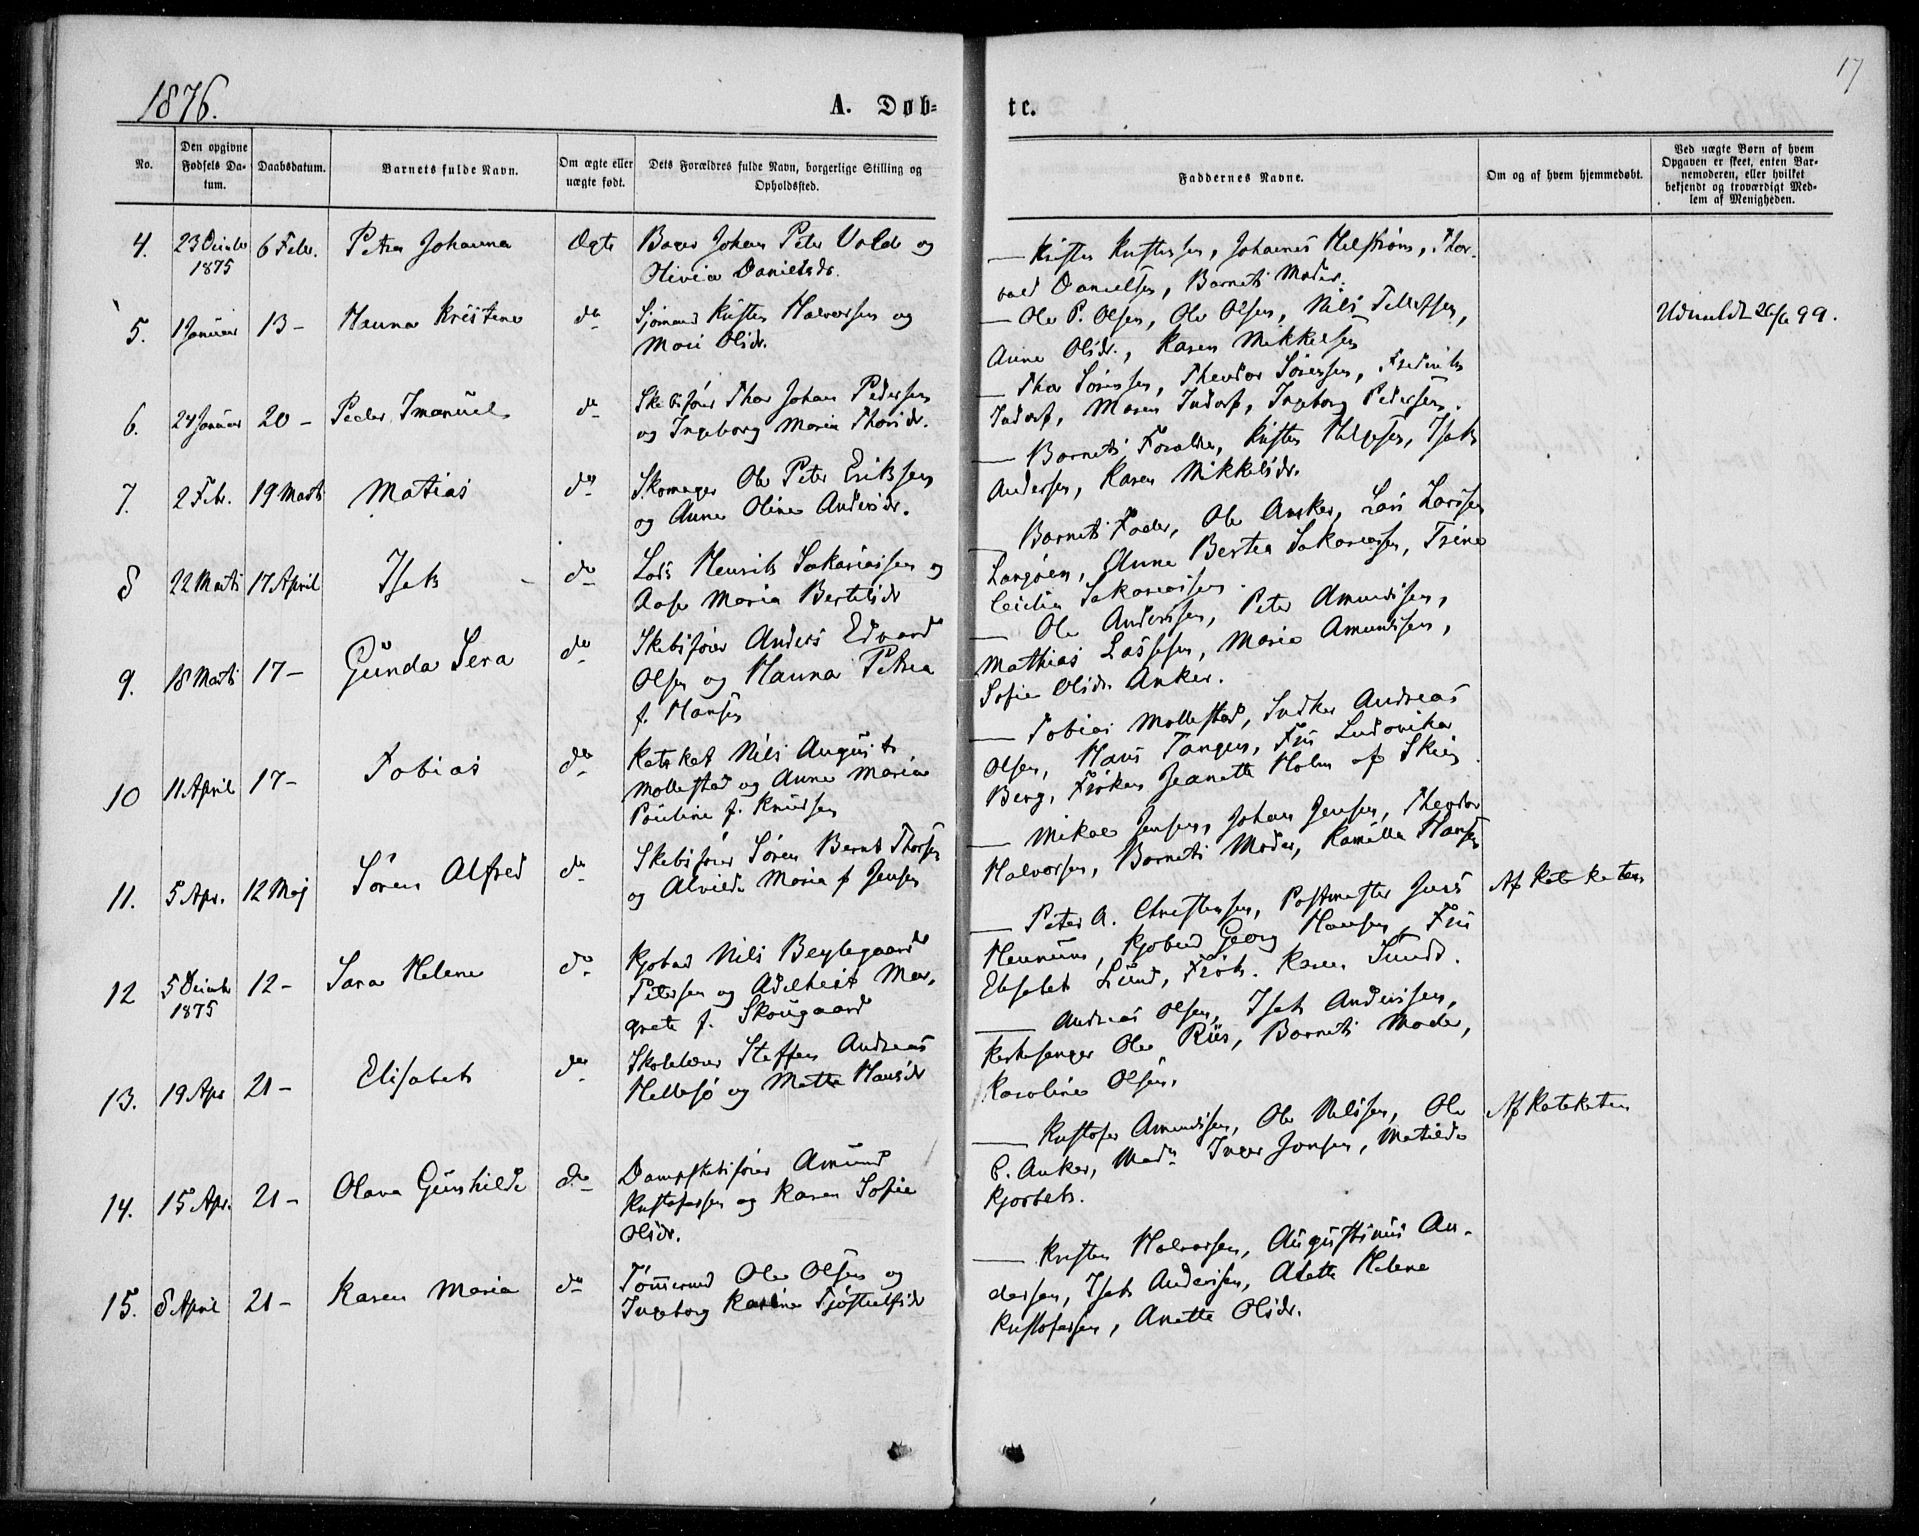 1876.
A. Døb-
te.
17
No.
Den opgivne Fødsels Da-tum.
Daabsdatum.
Barnets fulde Navn.
Om ægte eller uægte født.
Dets Forældres fulde Navn, borgerlige Stilling og Opholdssted.
Faddernes Navne.
Om og af hvem hjemmedøbt.
Ved uægte Børn af hvem Opgaven er skeet, enten Bar-nemoderen, eller hvilket bekjendt og troværdigt Med-lem af Menigheden.
4. 23 Decimbr 1875 6 Febr. Petra Johanna Ægte
Bager Johan Peter Vold og
Olivia Danielsdr.
Kristen Kristensen, Johannes Helstrøm, Thor-
vald Danielsen, Barnets Moder.
5. 1 Januar 13 - Hanna Kristine do
Sjømand Kristen Halvorsen og
Mari Olsdr.
Ole P. Olsen, Ole Olsen, Nils Tellefsen,
Anne Olsdr., Karen Mikkelsen
Udmeldt 26/6 99.
6. 24 Januar 20 - Peder Imanuel do
Skibsfører Thor Johan Pedersen
og Ingeborg Maria Thorsdr.
Thor Sørensen, Theodor Sørensen, Fredrik
Indorf, Maren Indorf, Ingeborg Pedersen.
7. 2 Febr. 19 Marts Matias do
Skomager Ole Peter Eriksen
og Anne Oline Andersdr.
Barnets Forældre, Kristen Helgesen, Isak
Andersen, Karen Mikkelsdr.
8 22 Marts 17 April Isak do
Lods Henrik Sakariassen og
Aase Maria Bertelsdr
Barnets Fader, Ole Anker, Lars Larssen
Langøen, Anne Bertea Sakariassen, Trine
Cecilia Sakariassen.
9. 18 Marts 17 - Gunda Sera do
Skibsfører Anders Edvard
Olsen og Hanna Petrea
f. Hansen
Ole Anderssen, Peter Amundsen,
Mathias Lassesen, Marie Amundsen,
Sofie Olsdr. Anker.
10 11 April 17 - Tobias do
Kateket Nils August
Mollestad og Anne Maria
Pauline f. Knudsen
Tobias Mollestad, Andreas
Olsen, Hans Tangen, Fru Ludovika
Berg, Frøken Jeanette Holm af Skien.
11. 5 Apr. 12 Maj Søren Alfred do
Skibsfører Søren Bernt Thorsen
og Alvilde Maria f Jensen
Mikael Jensen, Johan Jensen, Theodor
Halvorsen, Barnets Moder, Kamilla Hansen
Af Kateketen
12 5 Decimbr 1875 12 - Sara Helene do
Kjøbmd Nils Beylegaard
Petersen og Adelheid Mar-
grete f. Skougaard
Peter A. Christensen, Postmester Juss
Henum, Kjøbmd Georg Hansen, Fru
Elisabet Lund, Frøk. Karen Lund.
13. 19 Apr 21 - Elisabet do
Skolelærer Steffen Andreas
Hellesø og Mette Hansdr
Andreas Olsen, Isak Anderssen,
Kirkesanger Ole Riis, Barnets Moder,
Karoline Olsen.
14. 15 Apr. 21 - Olava Gunhilde do
Dampskibsfører Amund
Kristofersen og Karen Sofie
Olsdr.
Kristofer Amundsen, Ole Nilssen, Ole
C. Anker, Mad. Inger Jonsen, Matilde
Kjørbek.
Af Kateketen
15. 8 April 21 - Karen Maria do
Tømmermd Ole Olsen og
Ingeborg Karine Tjøstulfsdr
Kristen Halvorsen, Augustinus An-
dersen, Isak Anderssen, Aletta Helene
Kristofersen, Anette Olsdr.